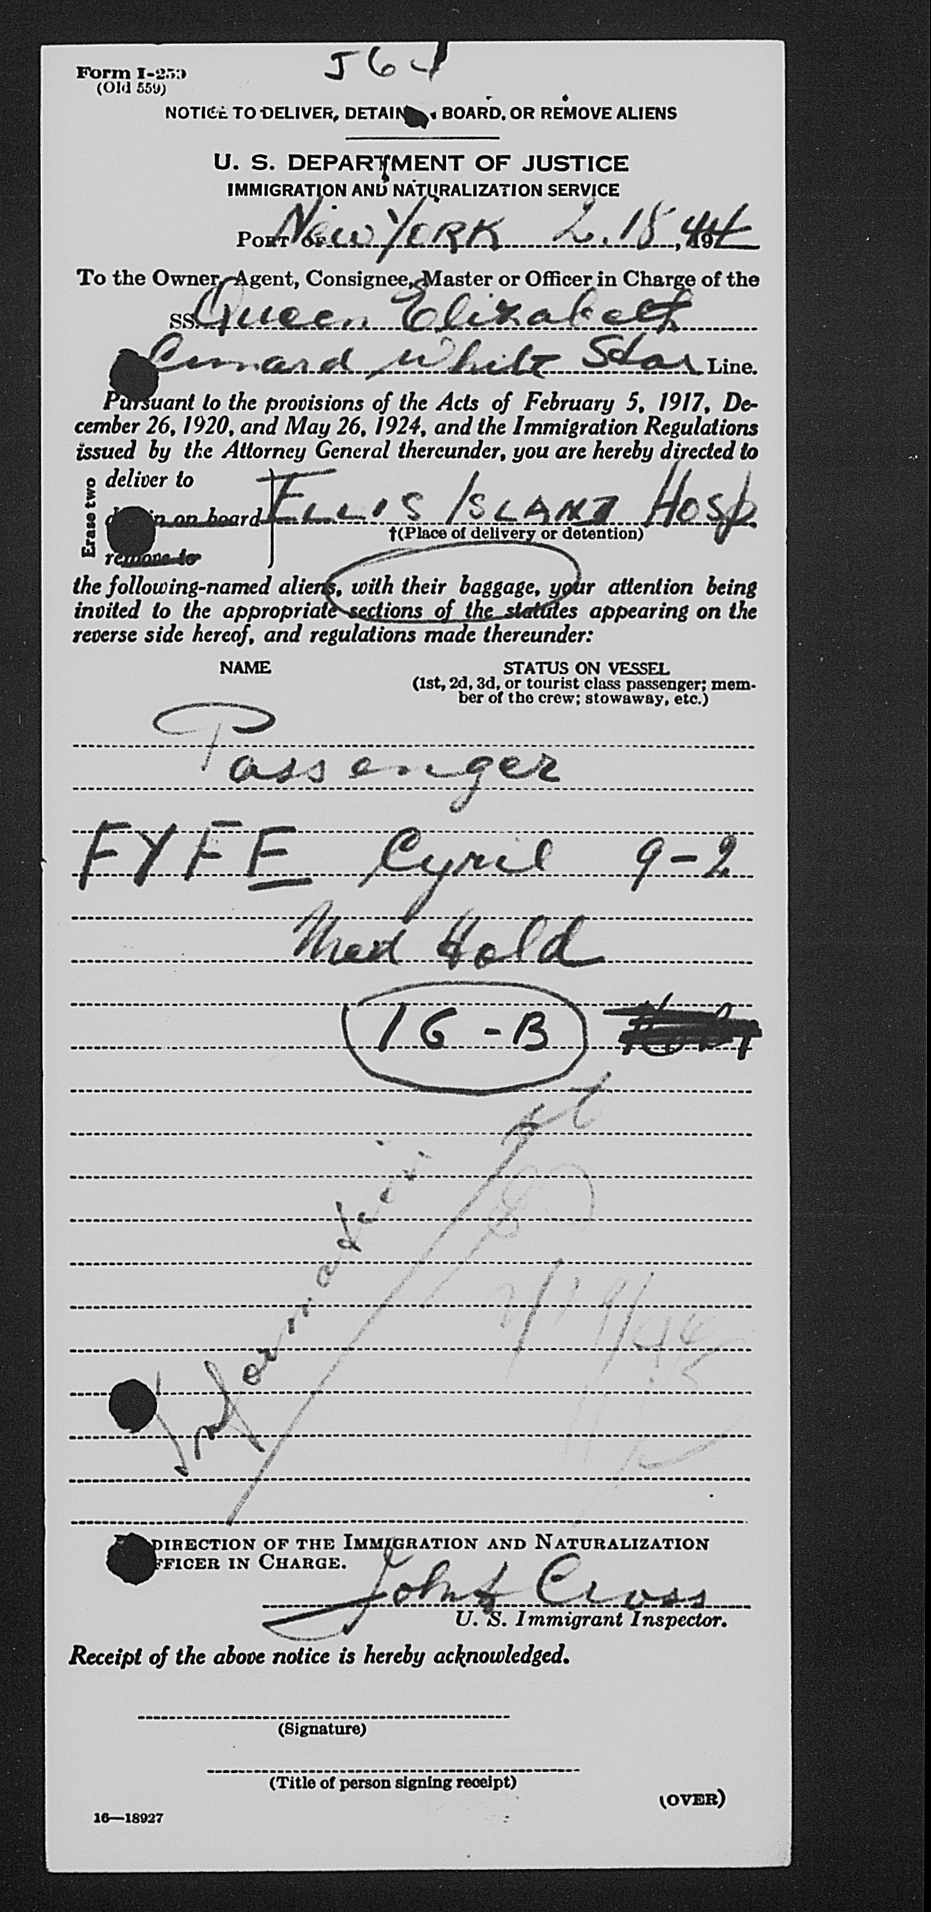 Form I-259
(Old 559)
NOTICE TO DELIVER, DETAIN BOARD, OR REMOVE ALIENS
U. S. DEPARTMENT OF JUSTICE
IMMIGRATION AND NATURALIZATION SERVICE
PORT OF New YORK 2.18, 1944
To the Owner, Agent, Consignee, Master or Officer in Charge of the
SS. Queen Elizabeth
Cunard White Star Line.
Pursuant to the provisions of the Acts of February 5, 1917, De-
cember 26, 1920, and May 26, 1924, and the Immigration Regulations
issued by the Attorney General thereunder, you are hereby directed to
Erase two
deliver to
on board ELLIS ISLAND Hosp
†(Place of delivery or detention)
remove to
the following-named aliens, with their baggage, your attention being
invited to the appropriate sections of the statutes appearing on the
reverse side hereof, and regulations made thereunder:
NAME STATUS ON VESSEL
(1st, 2d, 3d, or tourist class passenger; mem-
ber of the crew; stowaway, etc.)
Passenger
FYFE Cyril 9-2
Med Hold
16-B
Information
DIRECTION OF THE IMMIGRATION AND NATURALIZATION
OFFICER IN CHARGE.
John Cross
U. S. Immigrant Inspector.
Receipt of the above notice is hereby acknowledged.
(Signature)
(Title of person signing receipt)
(OVER)
16—18927